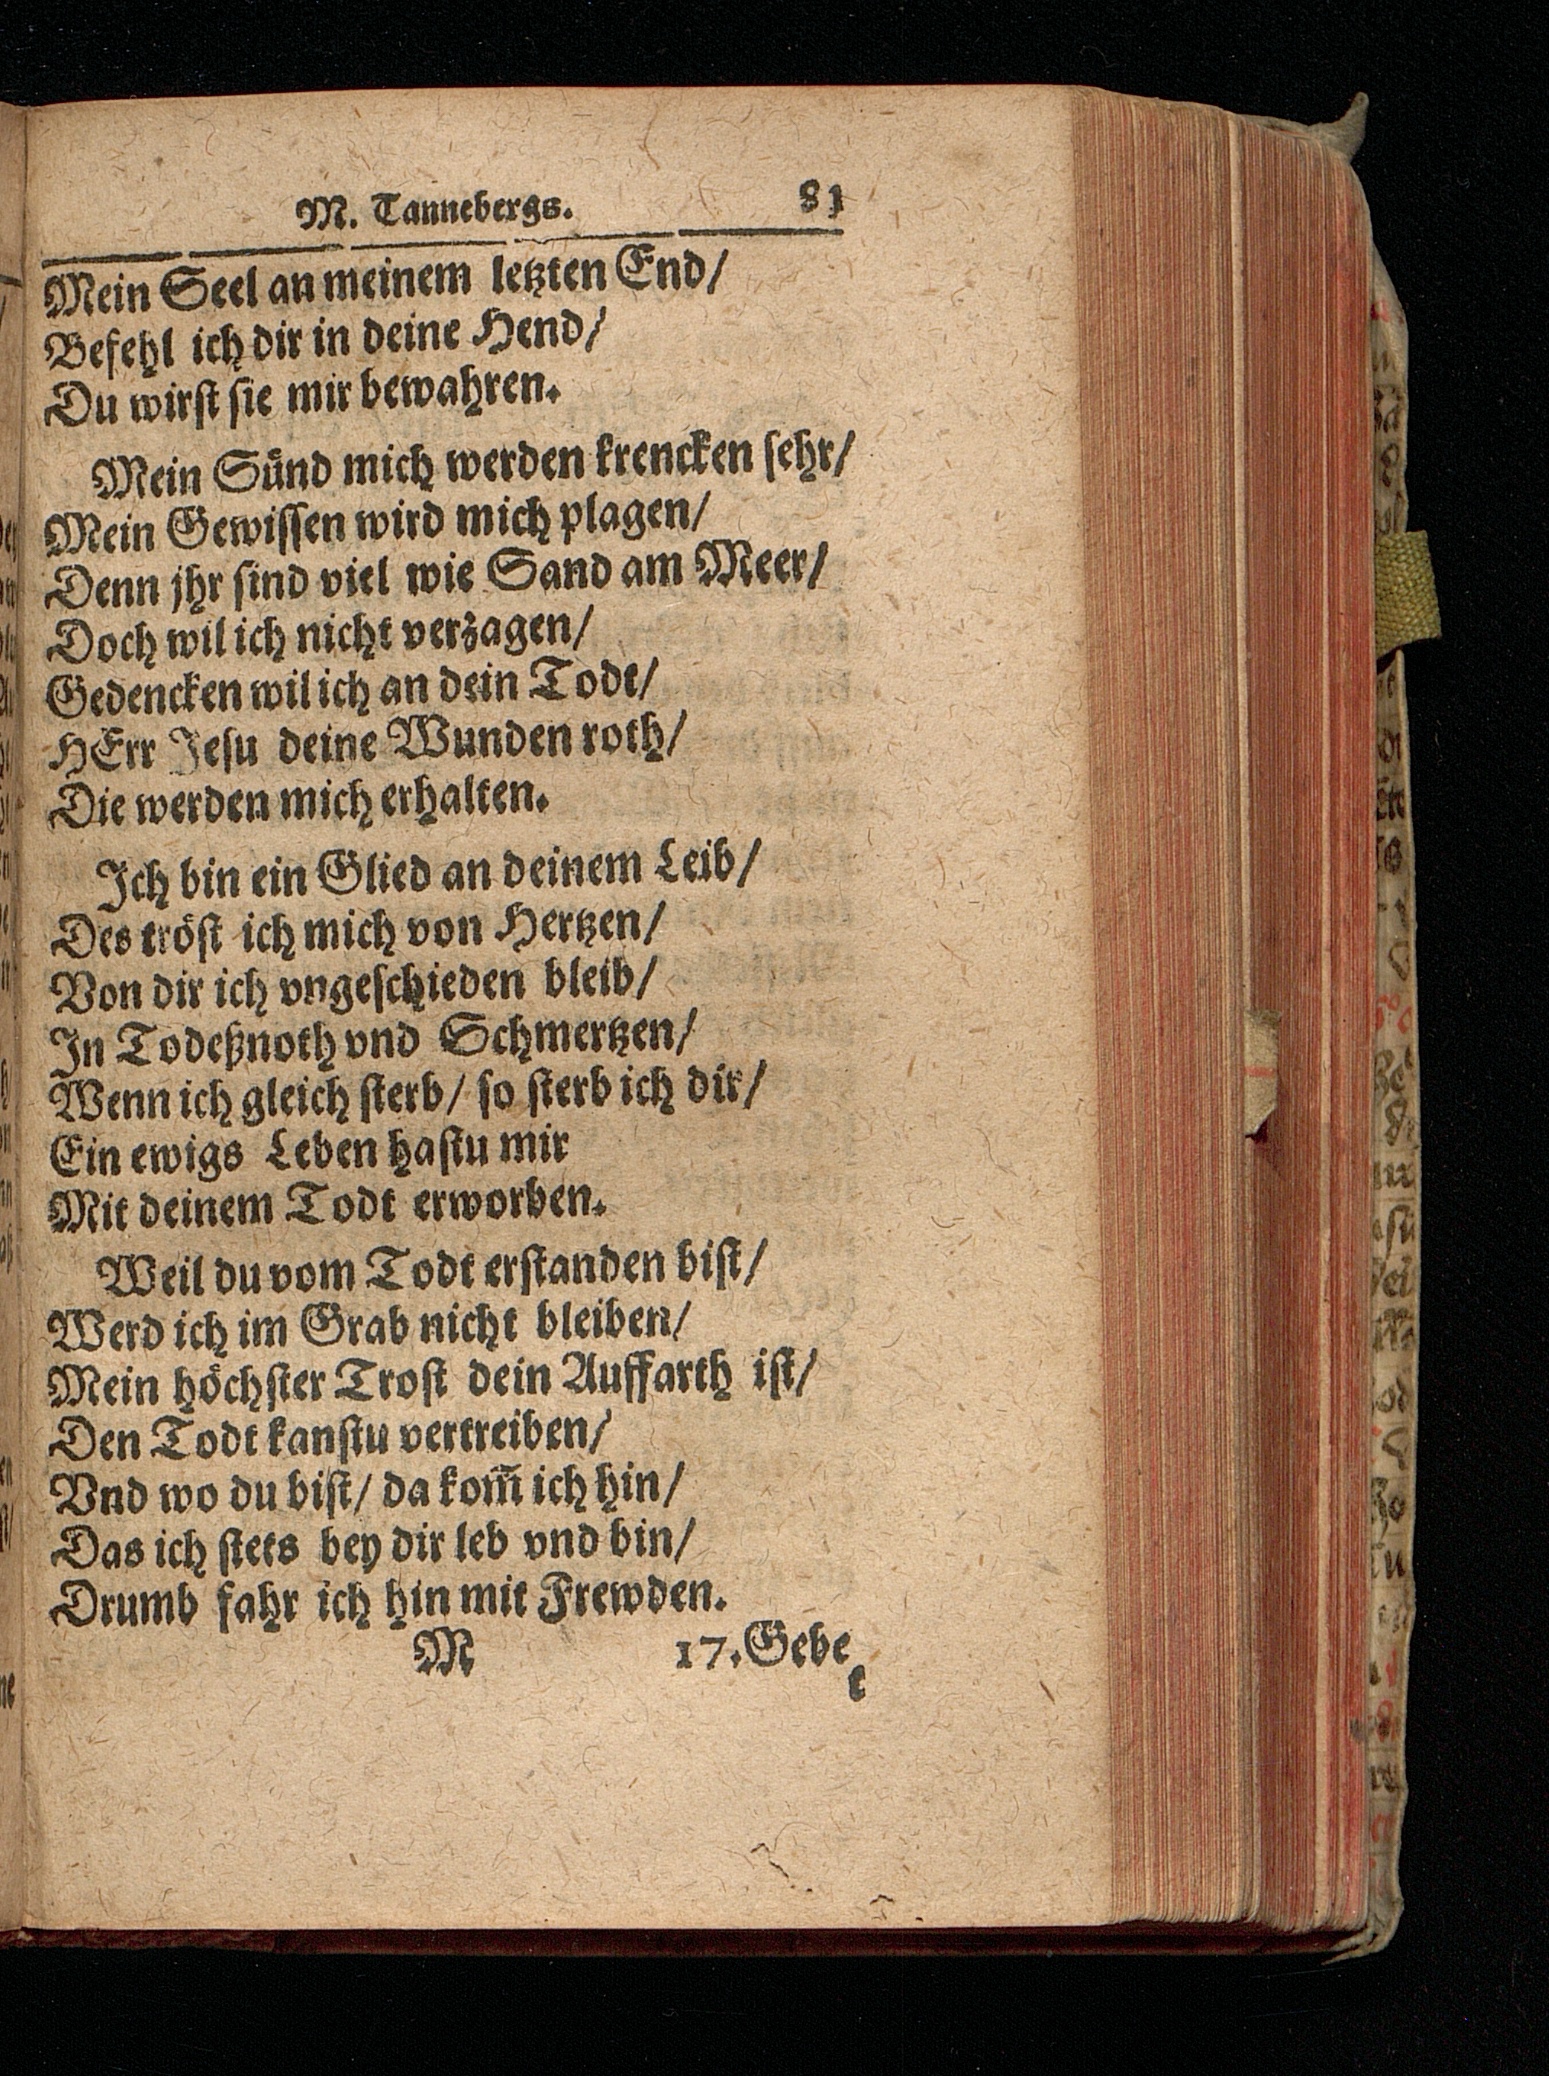 M. Tannebergs. 81
Mein Seel an meinem letzten End/
Befehl ich dir in deine Hend/
Du wirſt ſie mir bewahren.
Mein Suͤnd mich werden krencken ſehr/
Mein Gewiſſen wird mich plagen/
Denn jhr ſind viel wie Sand am Meer/
Doch wil ich nicht verzagen/
Gedencken wil ich an dein Todt/
HErr Jeſu deine Wunden roth/
Die werden mich erhalten.
Ich bin ein Glied an deinem Leib/
Des troͤſt ich mich von Hertzen/
Von dir ich vngeſchieden bleib/
In Todeßnoth vnd Schmertzen/
Wenn ich gleich ſterb/ ſo ſterb ich dir/
Ein ewigs Leben haſtu mir
Mit deinem Todt erworben.
Weil du vom Todt erſtanden biſt/
Werd ich im Grab nicht bleiben/
Mein hoͤchſter Troſt dein Auffarth iſt/
Den Todt kanſtu vertreiben/
Vnd wo du biſt/ da kom̃ ich hin/
Das ich ſtets bey dir leb vnd bin/
Drumb fahr ich hin mit Frewden.
M 17. Gebet